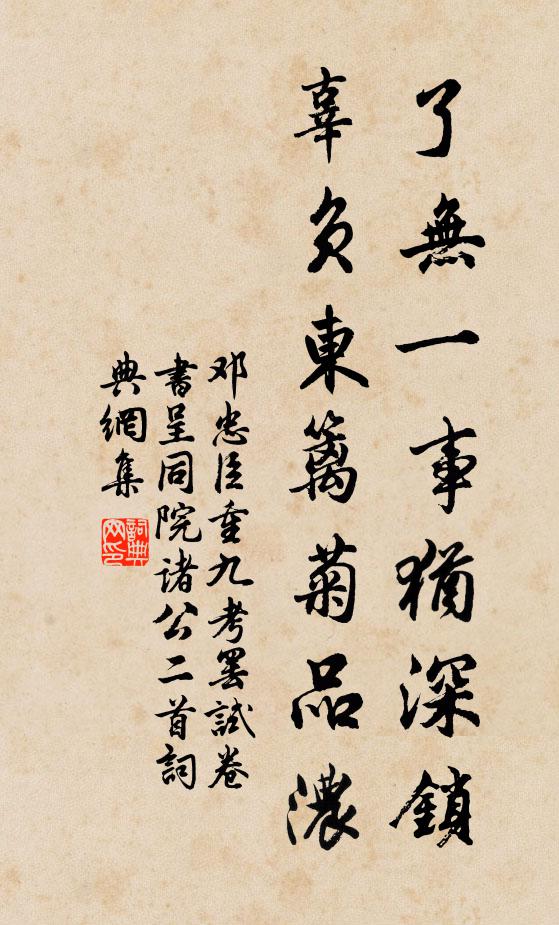 了無一事猶深鎖
辜負東篱菊品濃
邓忠臣重九考罢試卷
書呈同院诸公二首詞
典網集
詞典网印